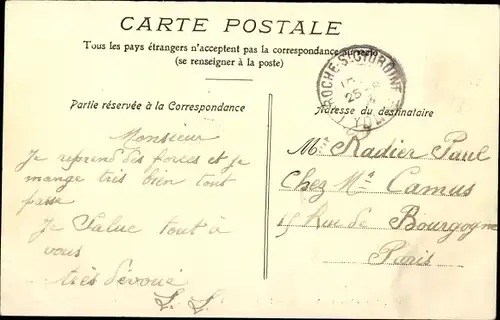 CARTE POSTALE
Tous les pays étrangers n'acceptent pas la correspondance au recto
(se renseigner à la poste)
Partie réservée à la Correspondance
Adresse du destinataire
Monsieur
Je reprend des forces et je
mange très bien tout
passe
Je Salue tout à
vous
très dévoué
L. L.
Mr Radier Paul
Chez Mr Camus
15 Rue de Bourgogne
Paris
25